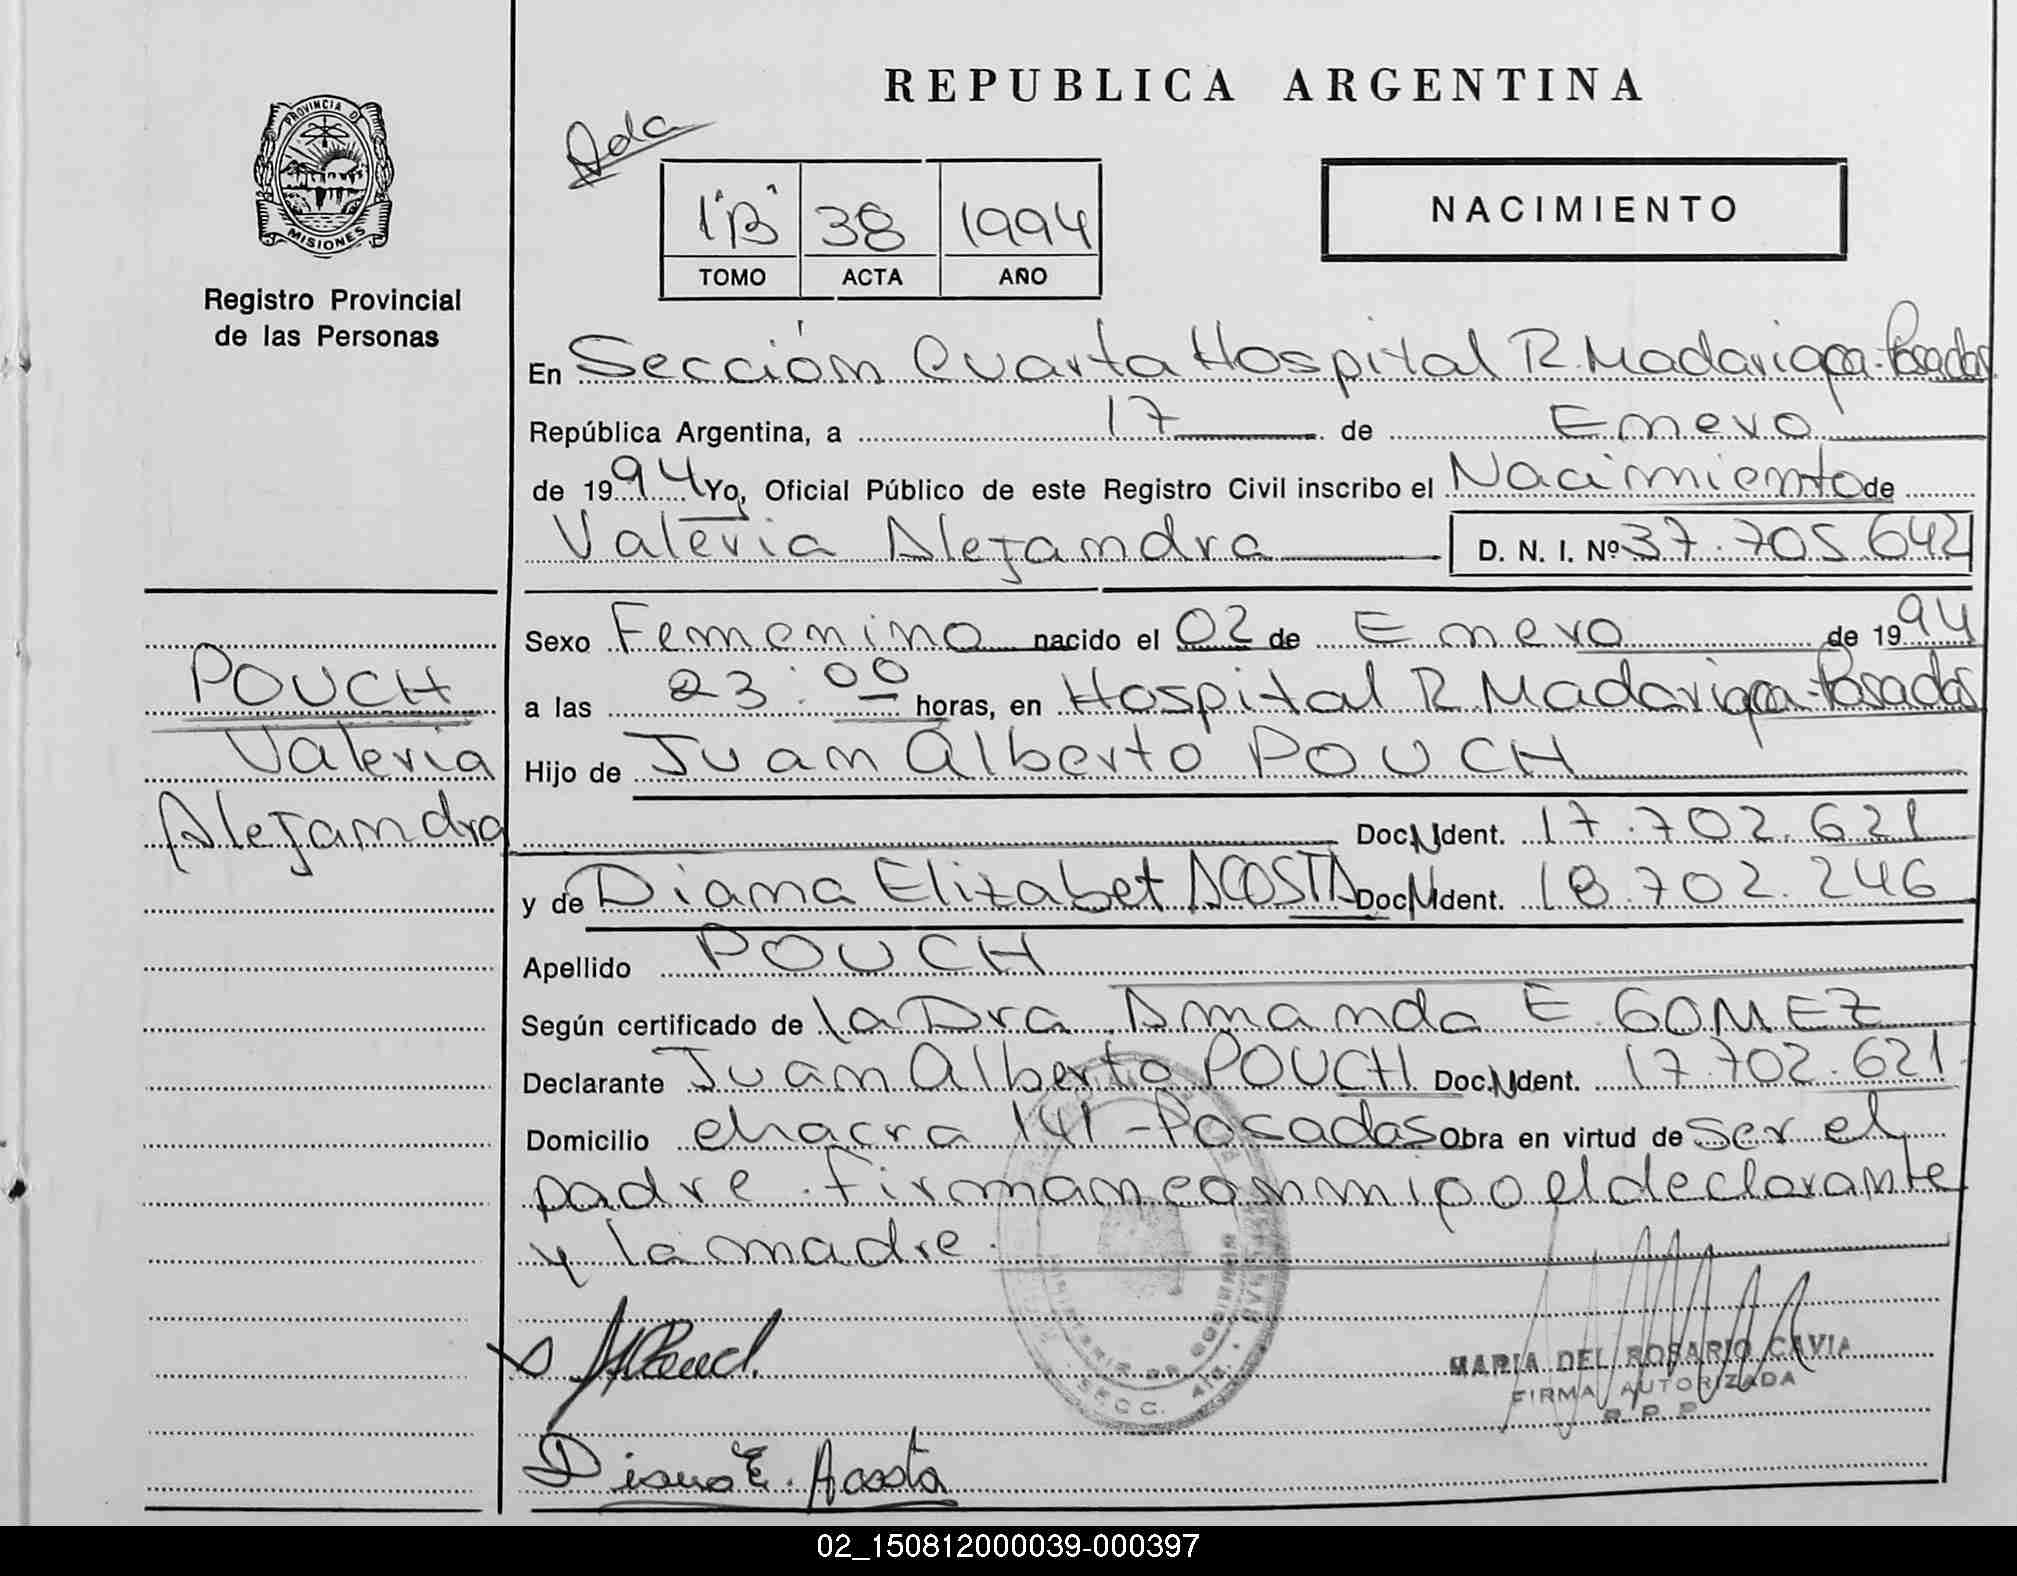 REPUBLICA ARGENTINA
PROVINCIA D
MISIONES
Registro Provincial
de las Personas
Ada
1"B" 38 1994
TOMO ACTA AÑO
NACIMIENTO
En Sección Cuarta Hospital R. Madariaga - Posadas
República Argentina, a 17 de Enero
de 1994 Yo, Oficial Público de este Registro Civil inscribo el Nacimiento de
Valeria Alejandra D. N. I. Nº 37.705.642
Sexo Femenino nacido el 02 de Enero de 1994
a las 23:00 horas, en Hospital R. Madariaga - Posadas
Hijo de Juan Alberto POUCH
Doc. N Ident. 17.702.621
y de Diana Elizabet ACOSTA Doc. N Ident. 18.702.246
Apellido POUCH
Según certificado de la Dra Amanda E. GOMEZ
Declarante Juan Alberto POUCH Doc. N Ident. 17.702.621
Domicilio chacra 141 - Posadas Obra en virtud de ser el
padre. firman conmigo el declarante
y la madre.
POUCH
Valeria
Alejandra
MINISTERIO DE GOBIERNO
SECC. 4ta.
MARIA DEL ROSARIO CAVIA
FIRMA AUTORIZADA
R. P. P.
Diana E. Acosta
02_150812000039-000397